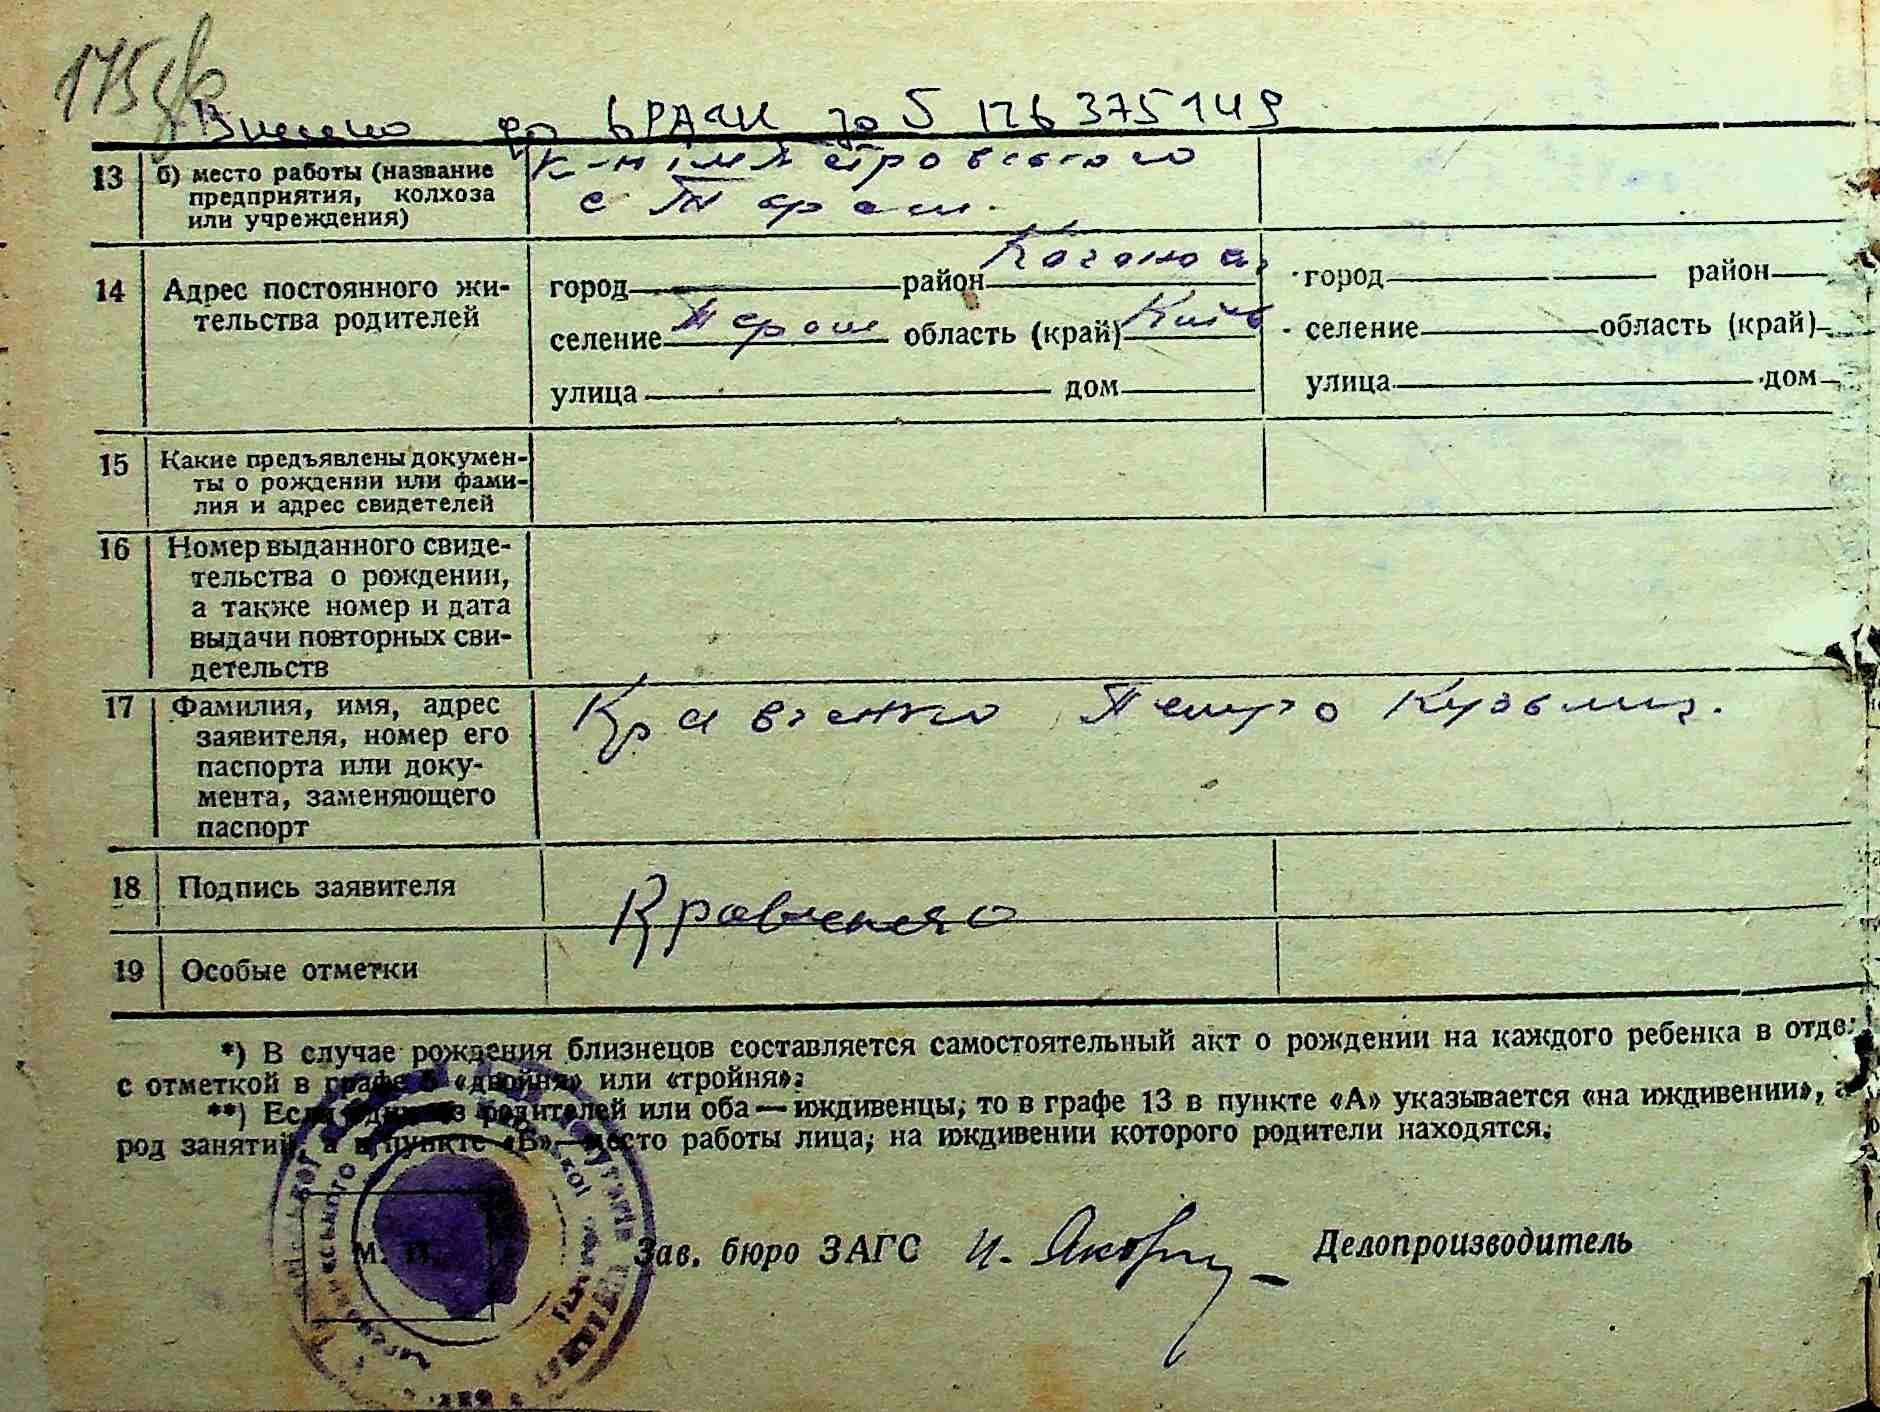 175
Внесено до ДРАЦС за № 126375149
13 б) место работы (название предприятия, колхоза или учреждения)
к-п ім Петровського
с Тараш.
14 Адрес постоянного жительства родителей
город район Каганов. город район
селение Тераш область (край) Київ селение область (край)
улица дом улица дом
15 Какие предъявлены докумен-
ты о рождении или фами-
лия и адрес свидетелей
16 Номер выданного свиде-
тельства о рождении,
а также номер и дата
выдачи повторных сви-
детельств
17 Фамилия, имя, адрес Кравченко Петро Кузьмич.
заявителя, номер его
паспорта или доку-
мента, заменяющего
паспорт
18 Подпись заявителя Кравченко
19 Особые отметки
*) В случае рождения близнецов составляется самостоятельный акт о рождении на каждого ребенка в отде
с отметкой в графе 5 «двойня» или «тройня».
**) Если один из родителей или оба — иждивенцы, то в графе 13 в пункте «А» указывается «на иждивении», а
род занятий, а в пункте «Б» — место работы лица, на иждивении которого родители находятся.
М. П. Зав. бюро ЗАГС Делопроизводитель